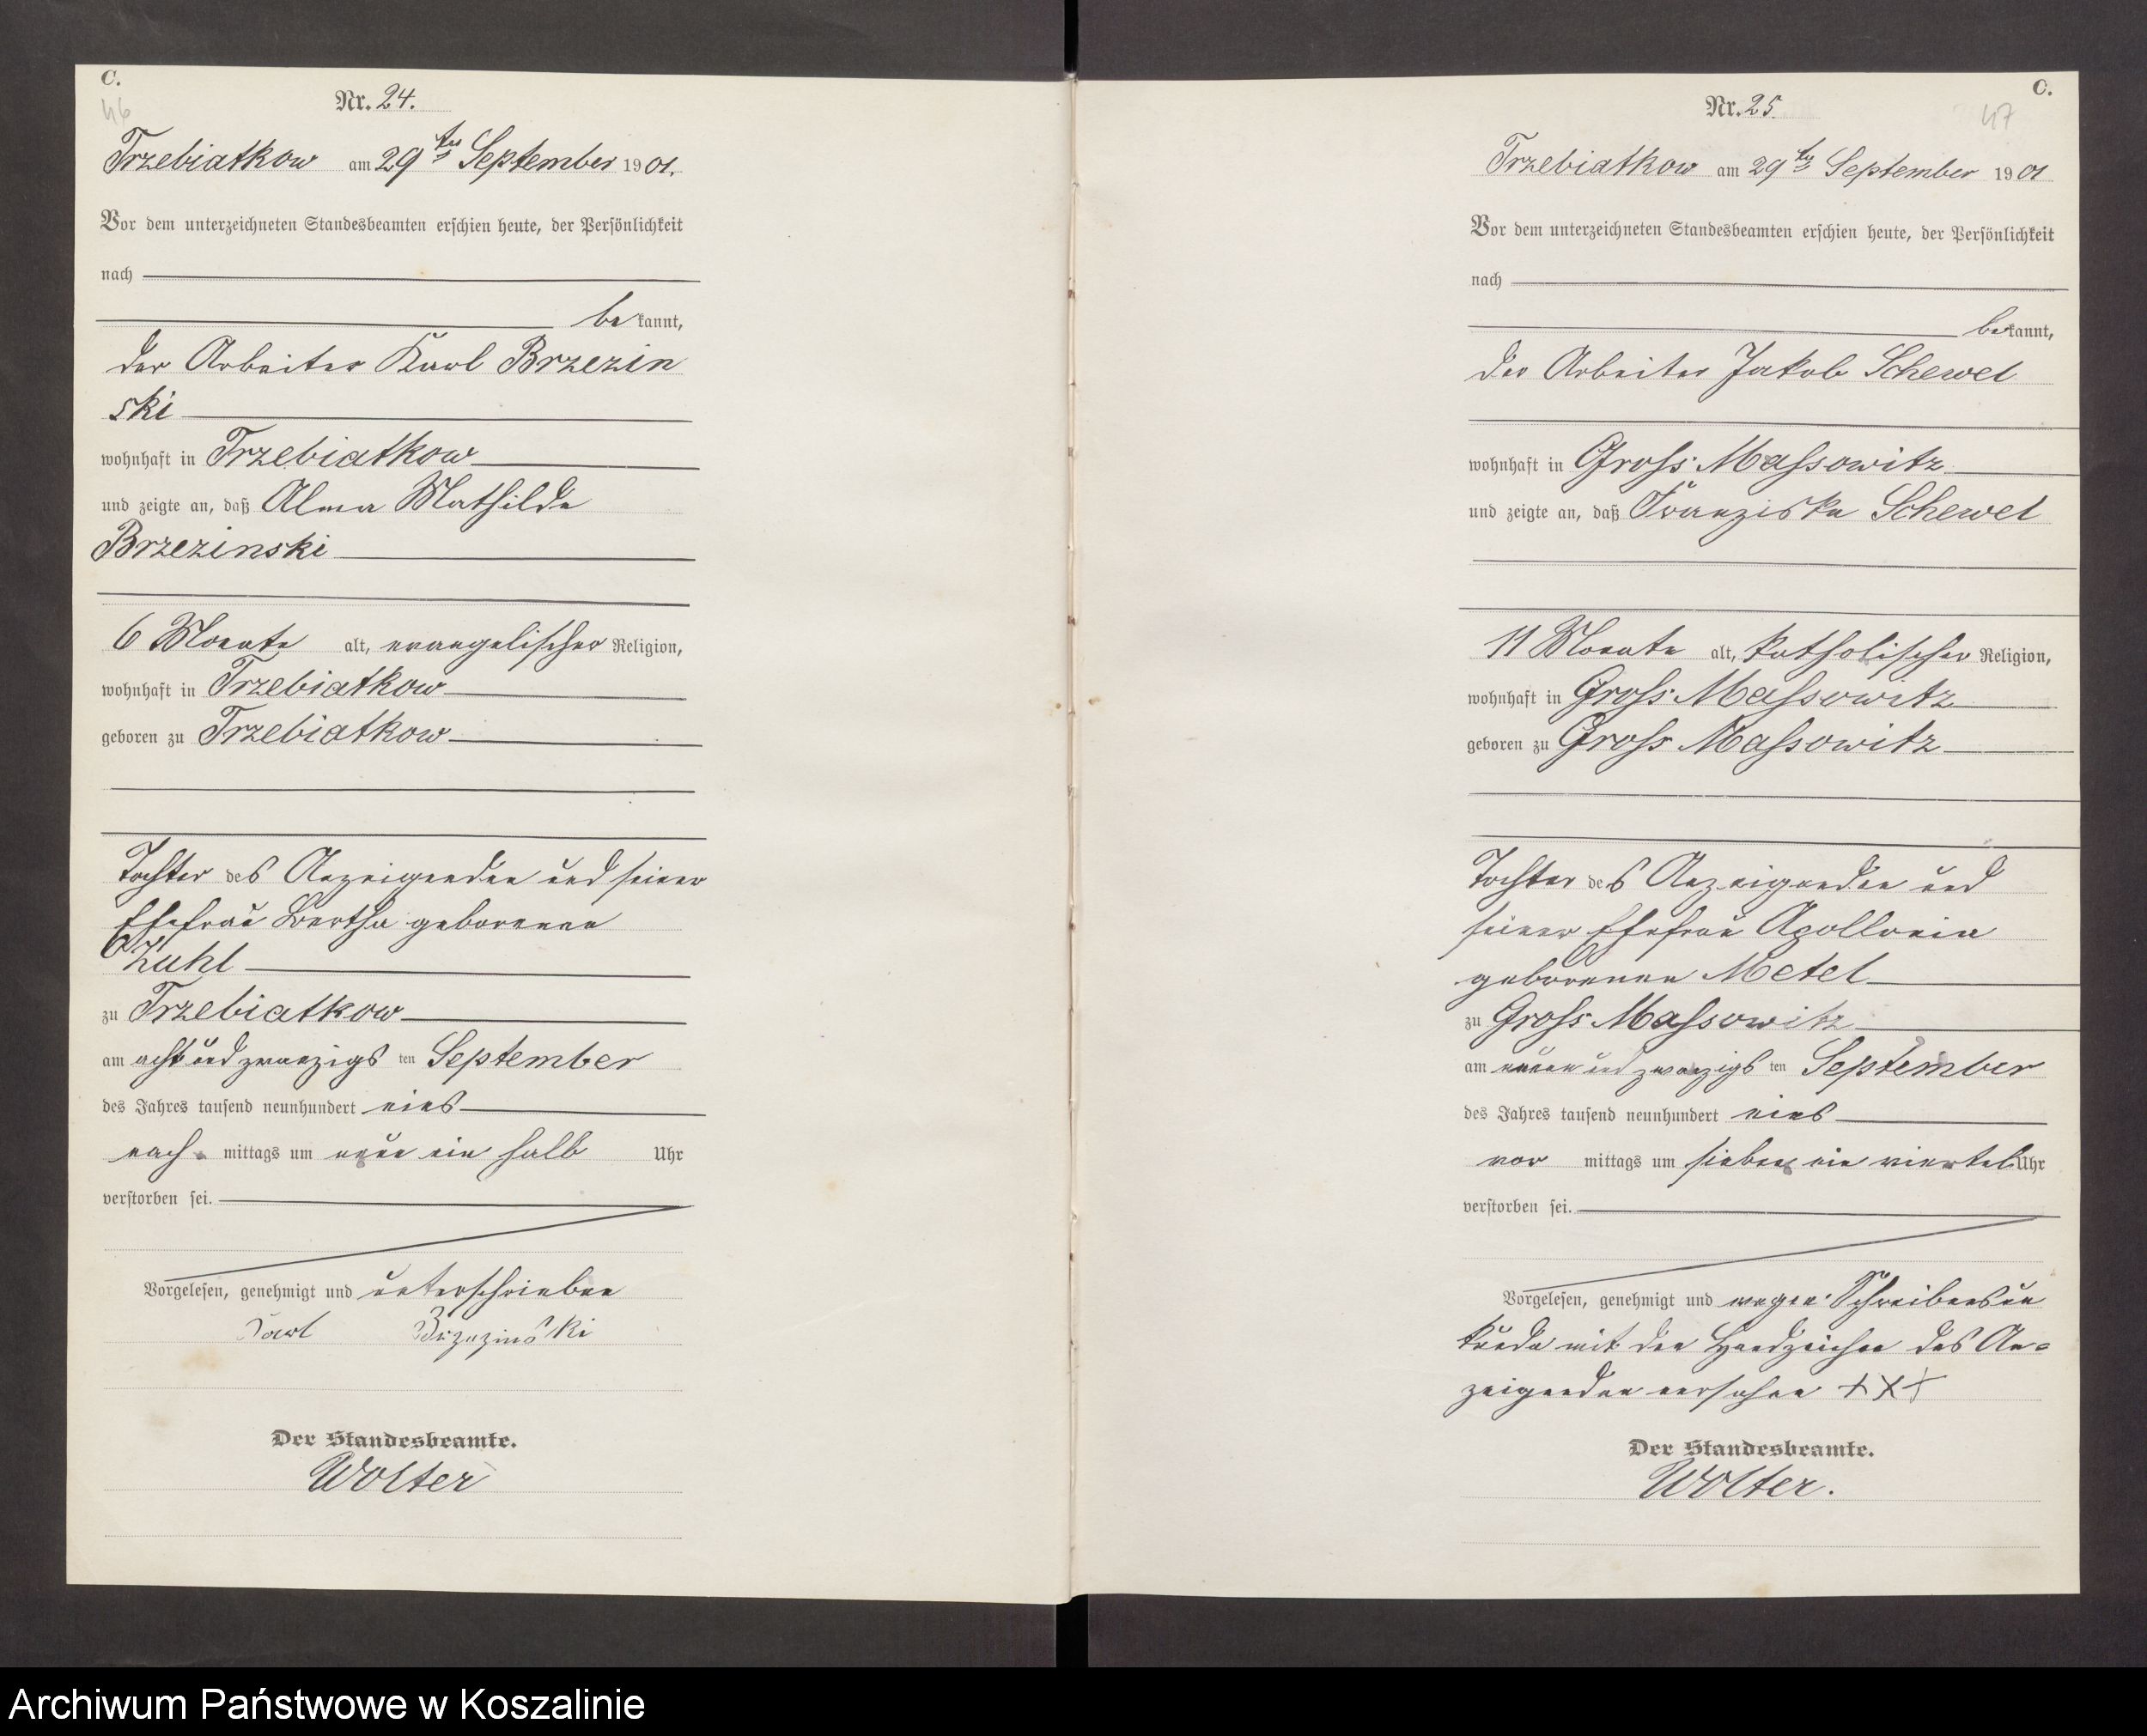 C.
46
Nr. 24.
Trzebiatkow am 29ten September 1901.
Vor dem unterzeichneten Standesbeamten erschien heute, der Persönlichkeit
nach
bekannt,
der Arbeiter Karl Brzezin
ski
wohnhaft in Trzebiatkow
und zeigte an, daß Alma Mathilde
Brzezinski
6 Monate alt, evangelischer Religion,
wohnhaft in Trzebiatkow
geboren zu Trzebiatkow
Tochter des Anzeigenden und seiner
Ehefrau Bertha geborenen
Zuhl
zu Trzebiatkow
am acht und zwanzigsten September
des Jahres tausend neunhundert eins
nachmittags um neun ein halb Uhr
verstorben sei.
Vorgelesen, genehmigt und unterschrieben
Karl Brzezinski
Der Standesbeamte.
Wolter
C.
47
Nr. 25.
Trzebiatkow am 29ten September 1901
Vor dem unterzeichneten Standesbeamten erschien heute, der Persönlichkeit
nach
bekannt,
der Arbeiter Jakob Schewel
wohnhaft in Gross Massowitz
und zeigte an, daß Franziska Schewel
11 Monate alt, katholischer Religion,
wohnhaft in Gross Massowitz
geboren zu Gross Massowitz
Tochter des Anzeigenden und
seiner Ehefrau Apollonia
geborenen Metel
zu Gross Massowitz
am neun und zwanzigsten September
des Jahres tausend neunhundert eins
vor mittags um sieben ein viertel Uhr
verstorben sei.
Vorgelesen, genehmigt und wegen Schreibensun
kunde mit den Handzeichen des An-
zeigenden versehen +++
Der Standesbeamte.
Wolter.
Archiwum Państwowe w Koszalinie